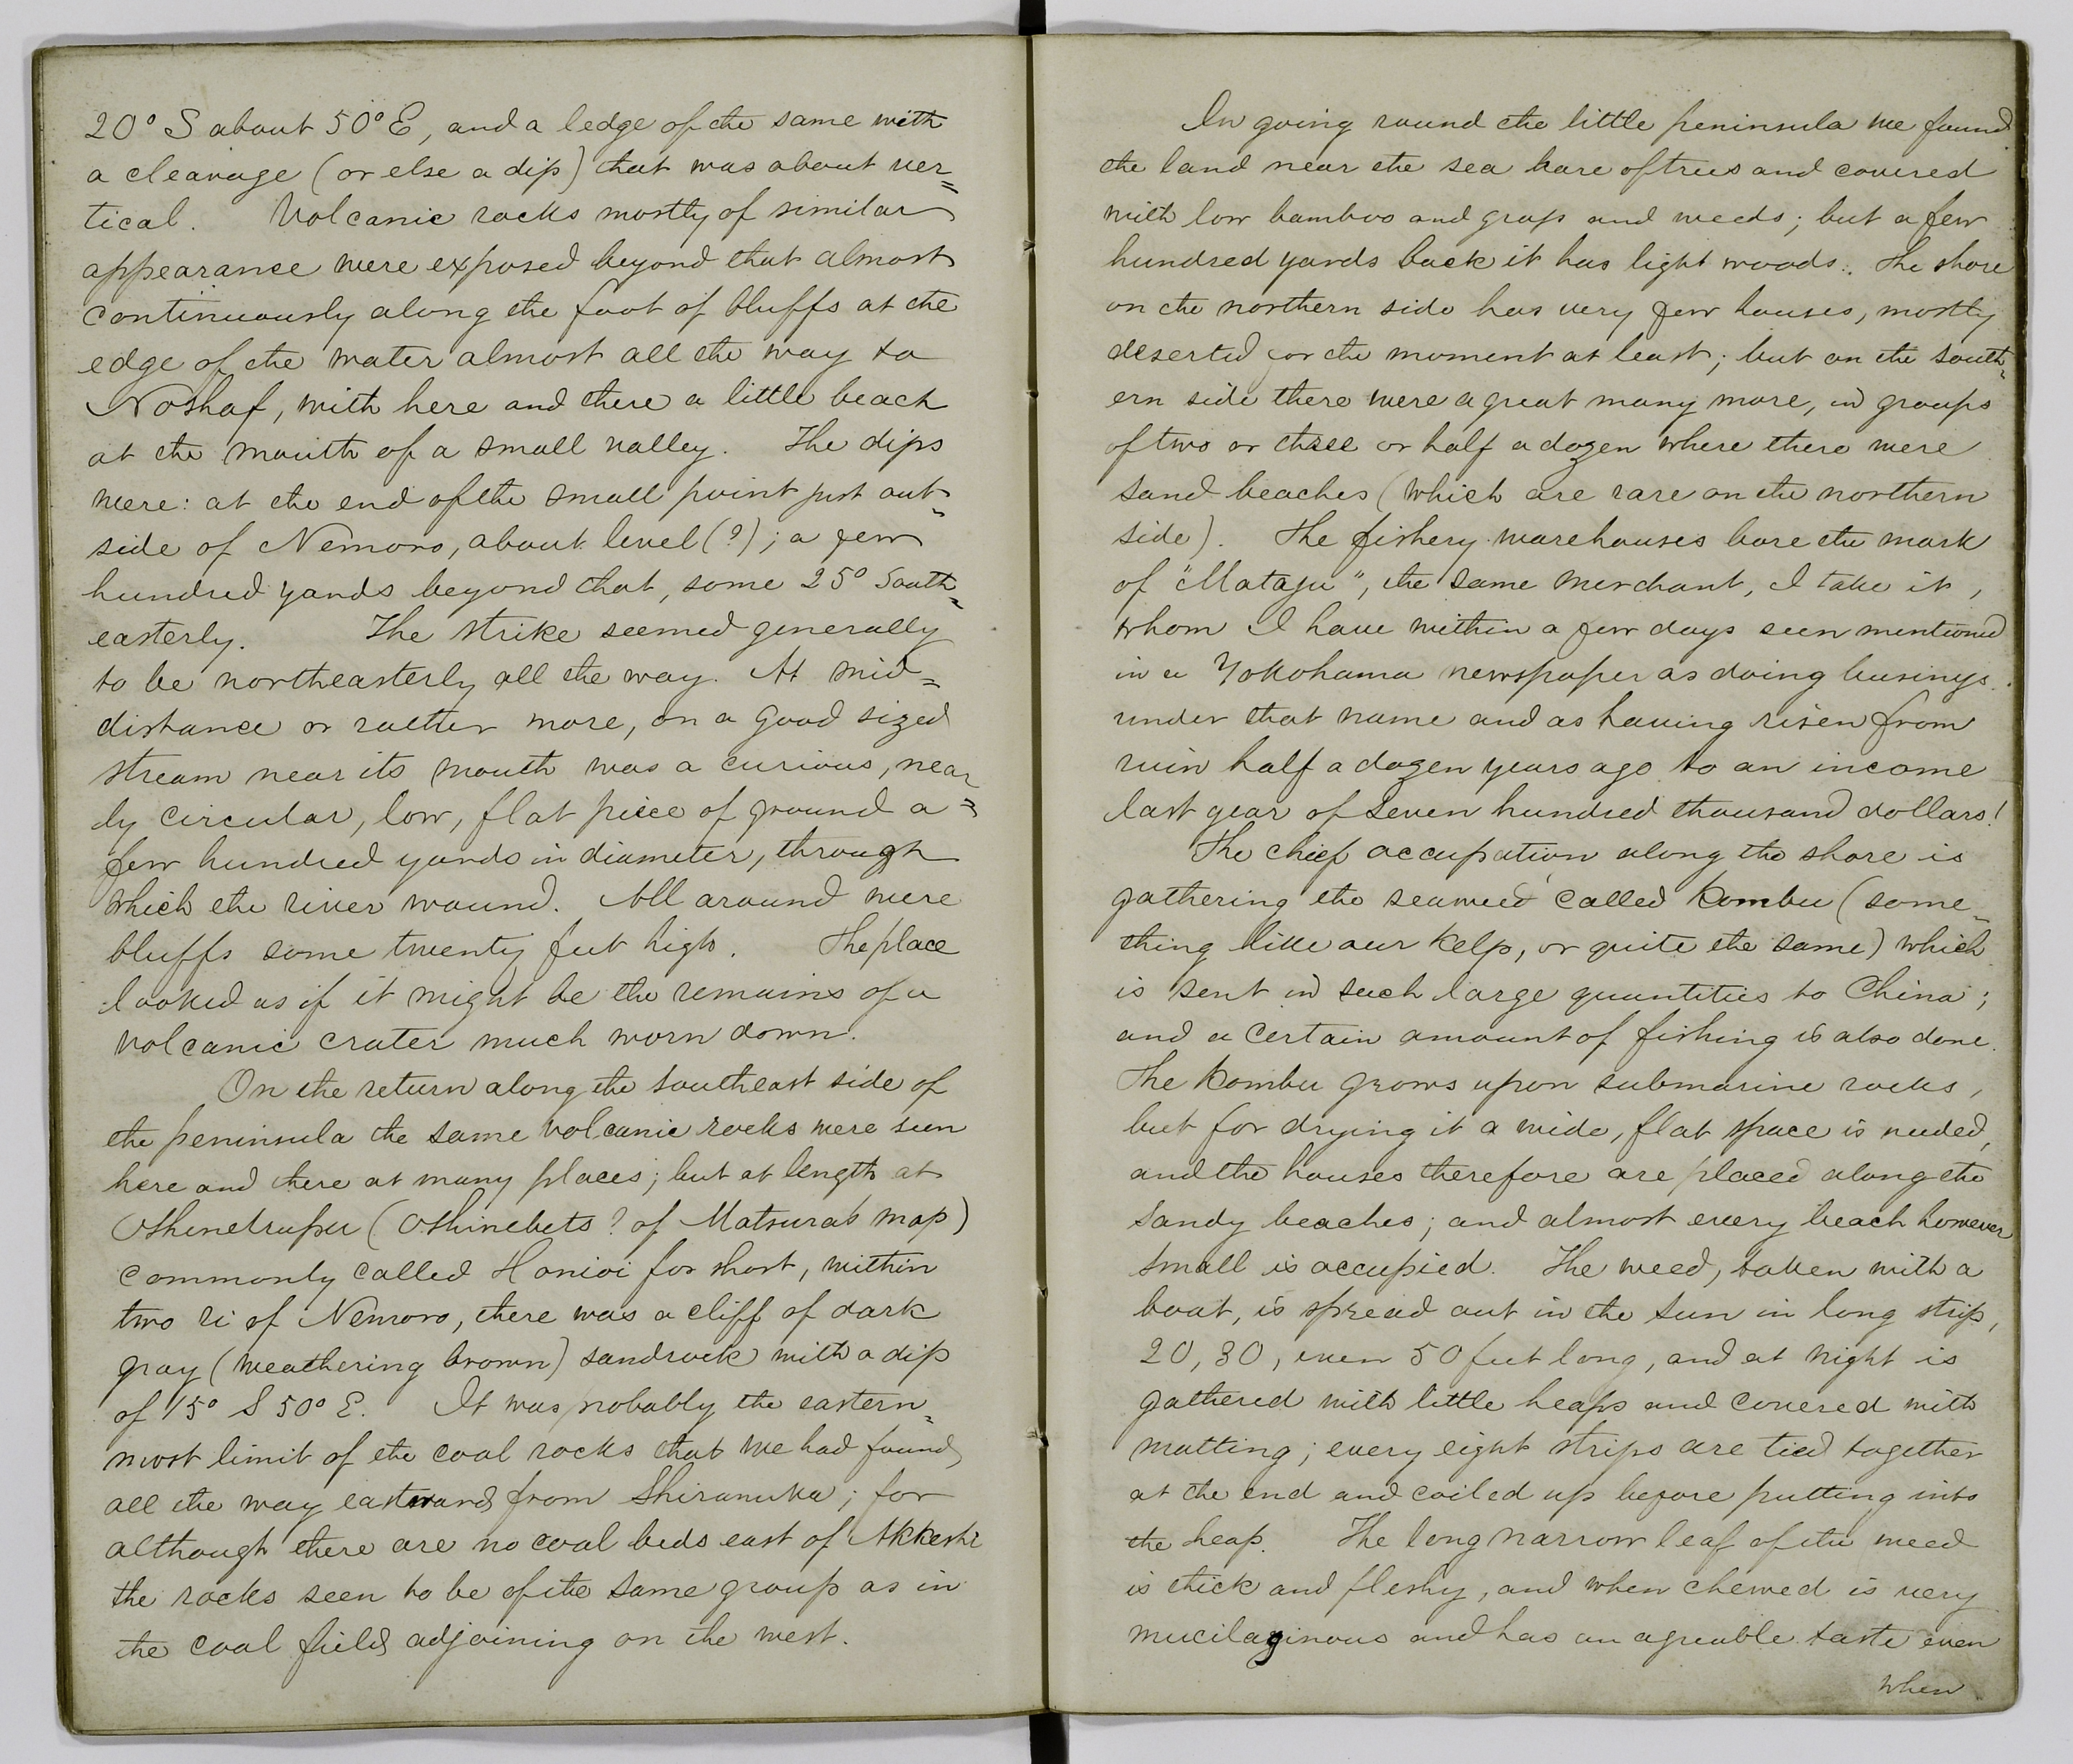 20° S about 50° E, and a ledge of the same with
a cleavage (or else a dip) that was about ver=
tical. Volcanic rocks mostly of similar
appearance were exposed beyond that almost
continuously along the foot of bluffs at the
edge of the water almost all the way to
Noshaf, with here and there a little beach
at the mouth of a small valley. The dips
were: at the end of the small point just out=
side of Nemoro, about level (?); a few
hundred yards beyond that, some 25° South=
easterly. The strike seemed generally
to be northeasterly all the way. At mid=
distance or rather more, on a good sized
stream near its mouth was a curious, near=
ly circular, low, flat piece of ground a
few hundred yards in diameter, through
which the river wound. All around were
bluffs some twenty feet high. The place
looked as if it might be the remains of a
volcanic crater much worn down.
On the return along the southeast side of
the peninsula the same volcanic rocks were seen
here and there at many places; but at length at
(Oshinebets? of Matsura's map)
commonly called Honioi for short, within
two ri of Nemoro, there was a cliff of dark
gray (weathering brown) sandrock with a dip
of 15° S 50° E. It was probably the eastern=
most limit of the coal rocks that we had found
all the way eastward from Shiranuka; for
although there are no coal beds east of Akkeshi
the rocks seen to be of the same group as in
the coal field adjoining on the west.
In going round the little peninsula we found
the land near the sea bare of trees and covered
with low bamboo and grass and weeds; but a few
hundred yards back it has light woods. The shore
on the northern side has very few houses, mostly
deserted for the moment at least; but on the south=
ern side there were a great many more, in groups
of two or three or half a dozen where there were
sand beaches (which are rare on the northern
side). The fishery warehouses bore the mark
of "Mataju", the same merchant, I take it,
whom I have within a few days seen mentioned
in a Yokohama newspaper as doing business
under that name and as having risen from
ruin half a dozen years ago to an income
last year of seven hundred thousand dollars!
The chief occupation along the shore is
gathering the seaweed called kombu (some=
thing like our kelp, or quite the same) which
is sent in such large quantities to China;
and a certain amount of fishing is also done.
The kombu grows upon submarine rocks,
but for drying it a wide, flat space is needed,
and the houses therefore are placed along the
sandy beaches; and almost every beach however
small is occupied. The weed, taken with a
boat, is spread out in the sun in long strips,
20, 30, even 50 feet long, and at night is
gathered with little heaps and covered with
matting; every eight strips are tied together
at the end and coiled up before putting into
the heap. The long narrow leaf of the weed
is thick and fleshy, and when chewed is very
mucilaginous and has an agreable taste even
when